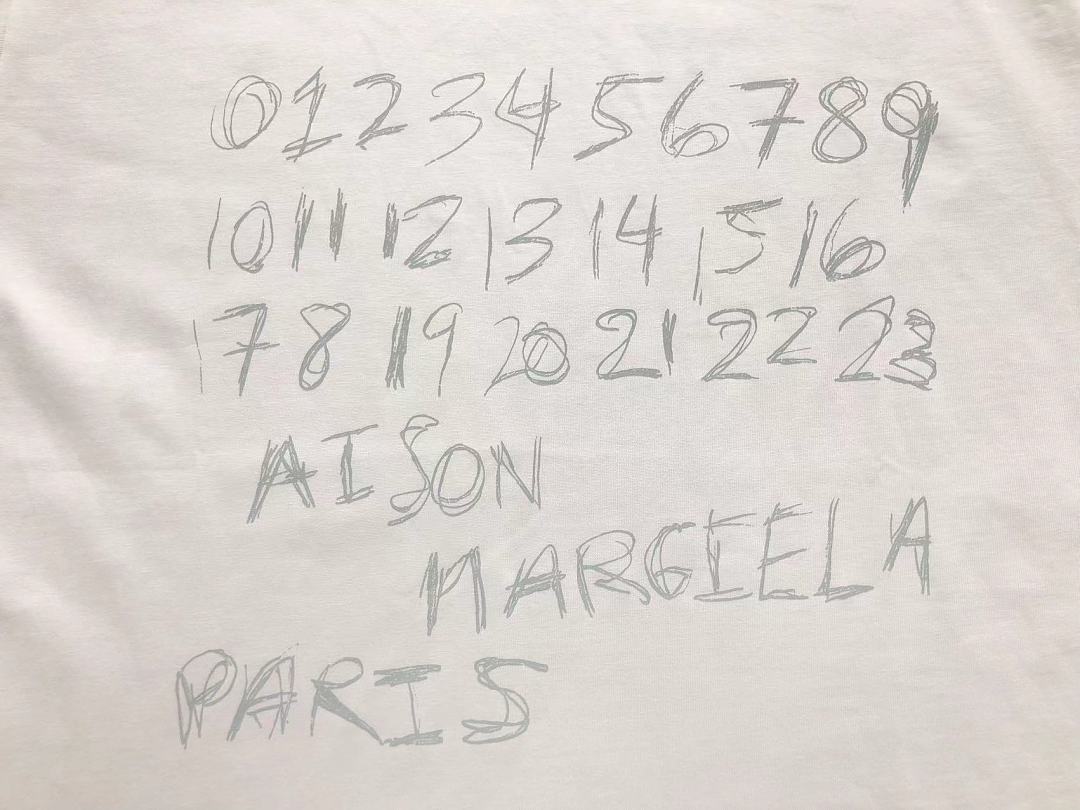 0 1 2 3 4 5 6 7 8 9
10 11 12 13 14 15 16
17 8 19 20 21 22 23
AISON
MARGIELA
PARIS